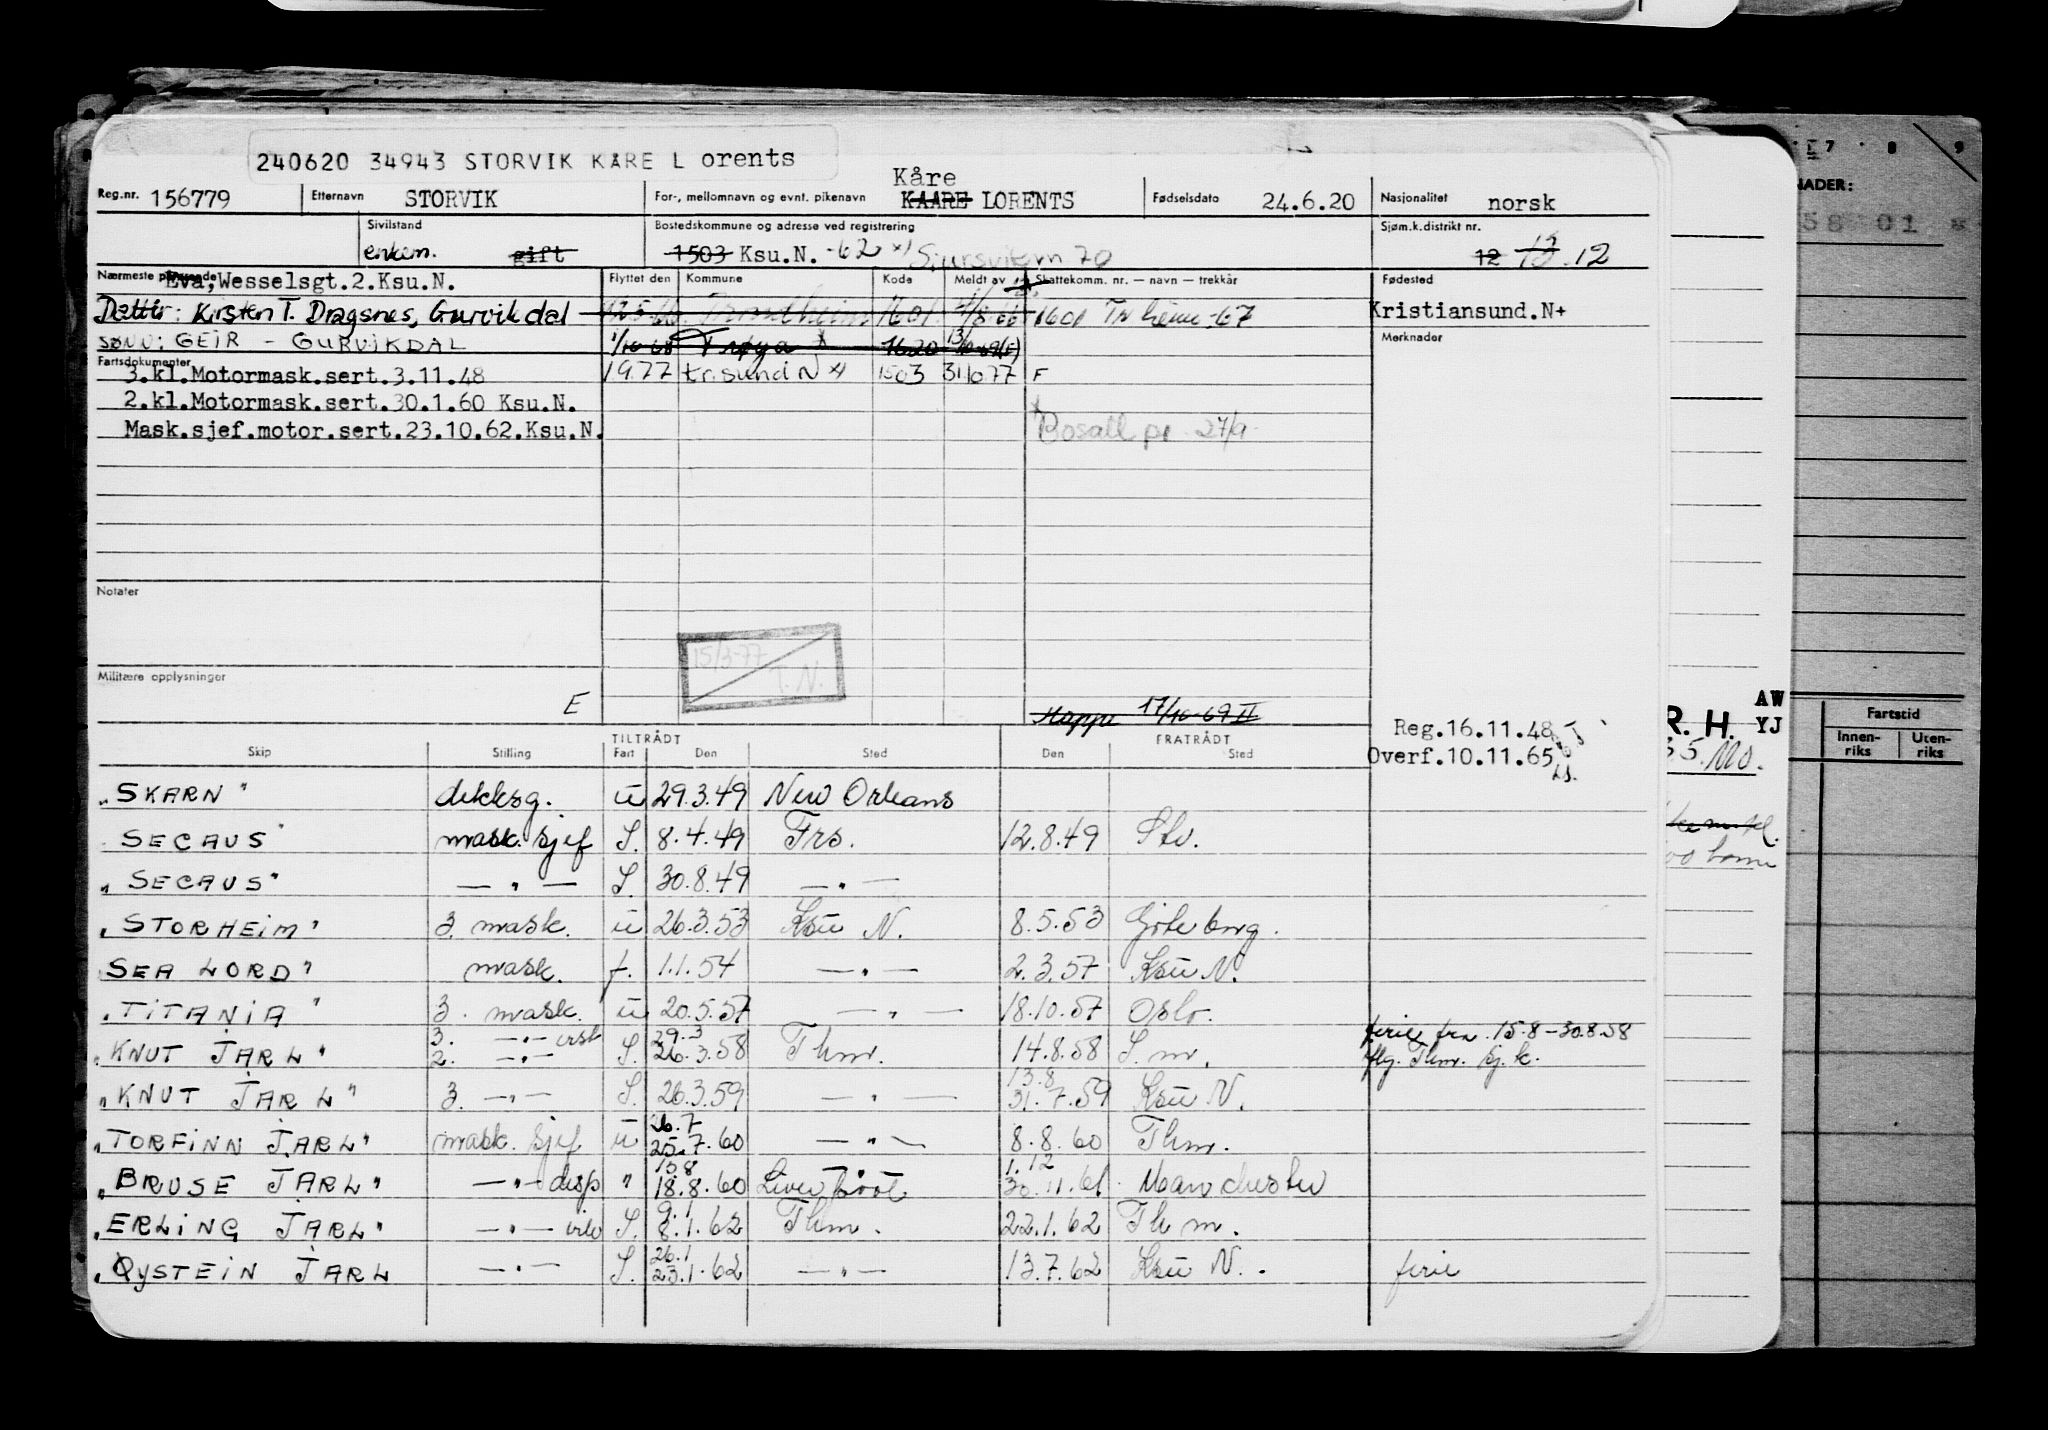 240620 34943 STORVIK KÅRE L orents
Reg.nr. 156779 Etternavn STORVIK For-, mellomnavn og evnt. pikenavn Kåre KAARE LORENTS Fødselsdato 24.6.20 Nasjonalitet norsk
Sivilstand enkem. gift Bostedskommune og adresse ved registrering 1503 Ksu.N. -62 Sjøm.k.distrikt nr. 12 12
Nærmeste pårørende Eva, Wesselsgt.2.Ksu.N. Flyttet den Kommune Kode Meldt av Skattekomm. nr. — navn — trekkår Fødested
Datter: Kirsten T. Dragsnes, Gurvikdal 1601 1601 -67 Kristiansund.N+
SØNN: GEIR - GURVIKDAL 1/10-68 Frøya 1620 Merknader
Fartsdokumenter
3.kl.Motormask.sert.3.11.48 1977 kr.sund N 1503 31/1077 F
2.kl.Motormask.sert.30.1.60 Ksu.N.
Mask.sjef.motor.sert.23.10.62.Ksu.N. 27/9
Notater
15/3-77 T.N.
Militære opplysninger
E Mappe 17/10-69 II
Reg.16.11.48
Overf.10.11.65
TILTRÅDT FRATRÅDT
Skip Stilling Fart Den Sted Den Sted
"SKARN" dekksg. u 29.3.49 New Orleans
SECAUS" mask. sjef S. 8.4.49 Frs. 12.8.49 Stv.
"SECAUS" — " — S. 30.8.49 — " —
"STORHEIM" 3. mask. u 26.3.53 Ksu N. 8.5.53 Göteborg.
SEA LORD" mask. f. 1.1.54 — " — 2.3.57 Ksu N.
"TITANIA" 3. mask. u 20.5.57 — " — 18.10.57 Oslo.
3. — " — 29.3 ferie fra 15.8-30.8.58
"KNUT JARL" 2. — " — S. 26.3.58 Thm. 14.8.58 S. m. Thm. Sj.k.
13.8
"KNUT JARL" 3. — " — S. 26.3.59 — " — 31.7.59 Ksu N.
26.7
"TORFINN JARL" mask. sjef u 25.7.60 — " — 8.8.60 Thm.
15.8 1.12
"BRUSE JARL" — " — disp " 18.8.60 Liverpool 30.11.61 Manchester
9.1
"ERLING JARL" — " — S. 8.1.62 Thm. 22.1.62 Thm.
26.1
"ØYSTEIN JARL — " — S. 23.1.62 — " — 13.7.62 Ksu N. ferie
7 8 9
NADER:
58 01
AW
R. H. YJ
Fartstid
Innen-riks Uten-riks